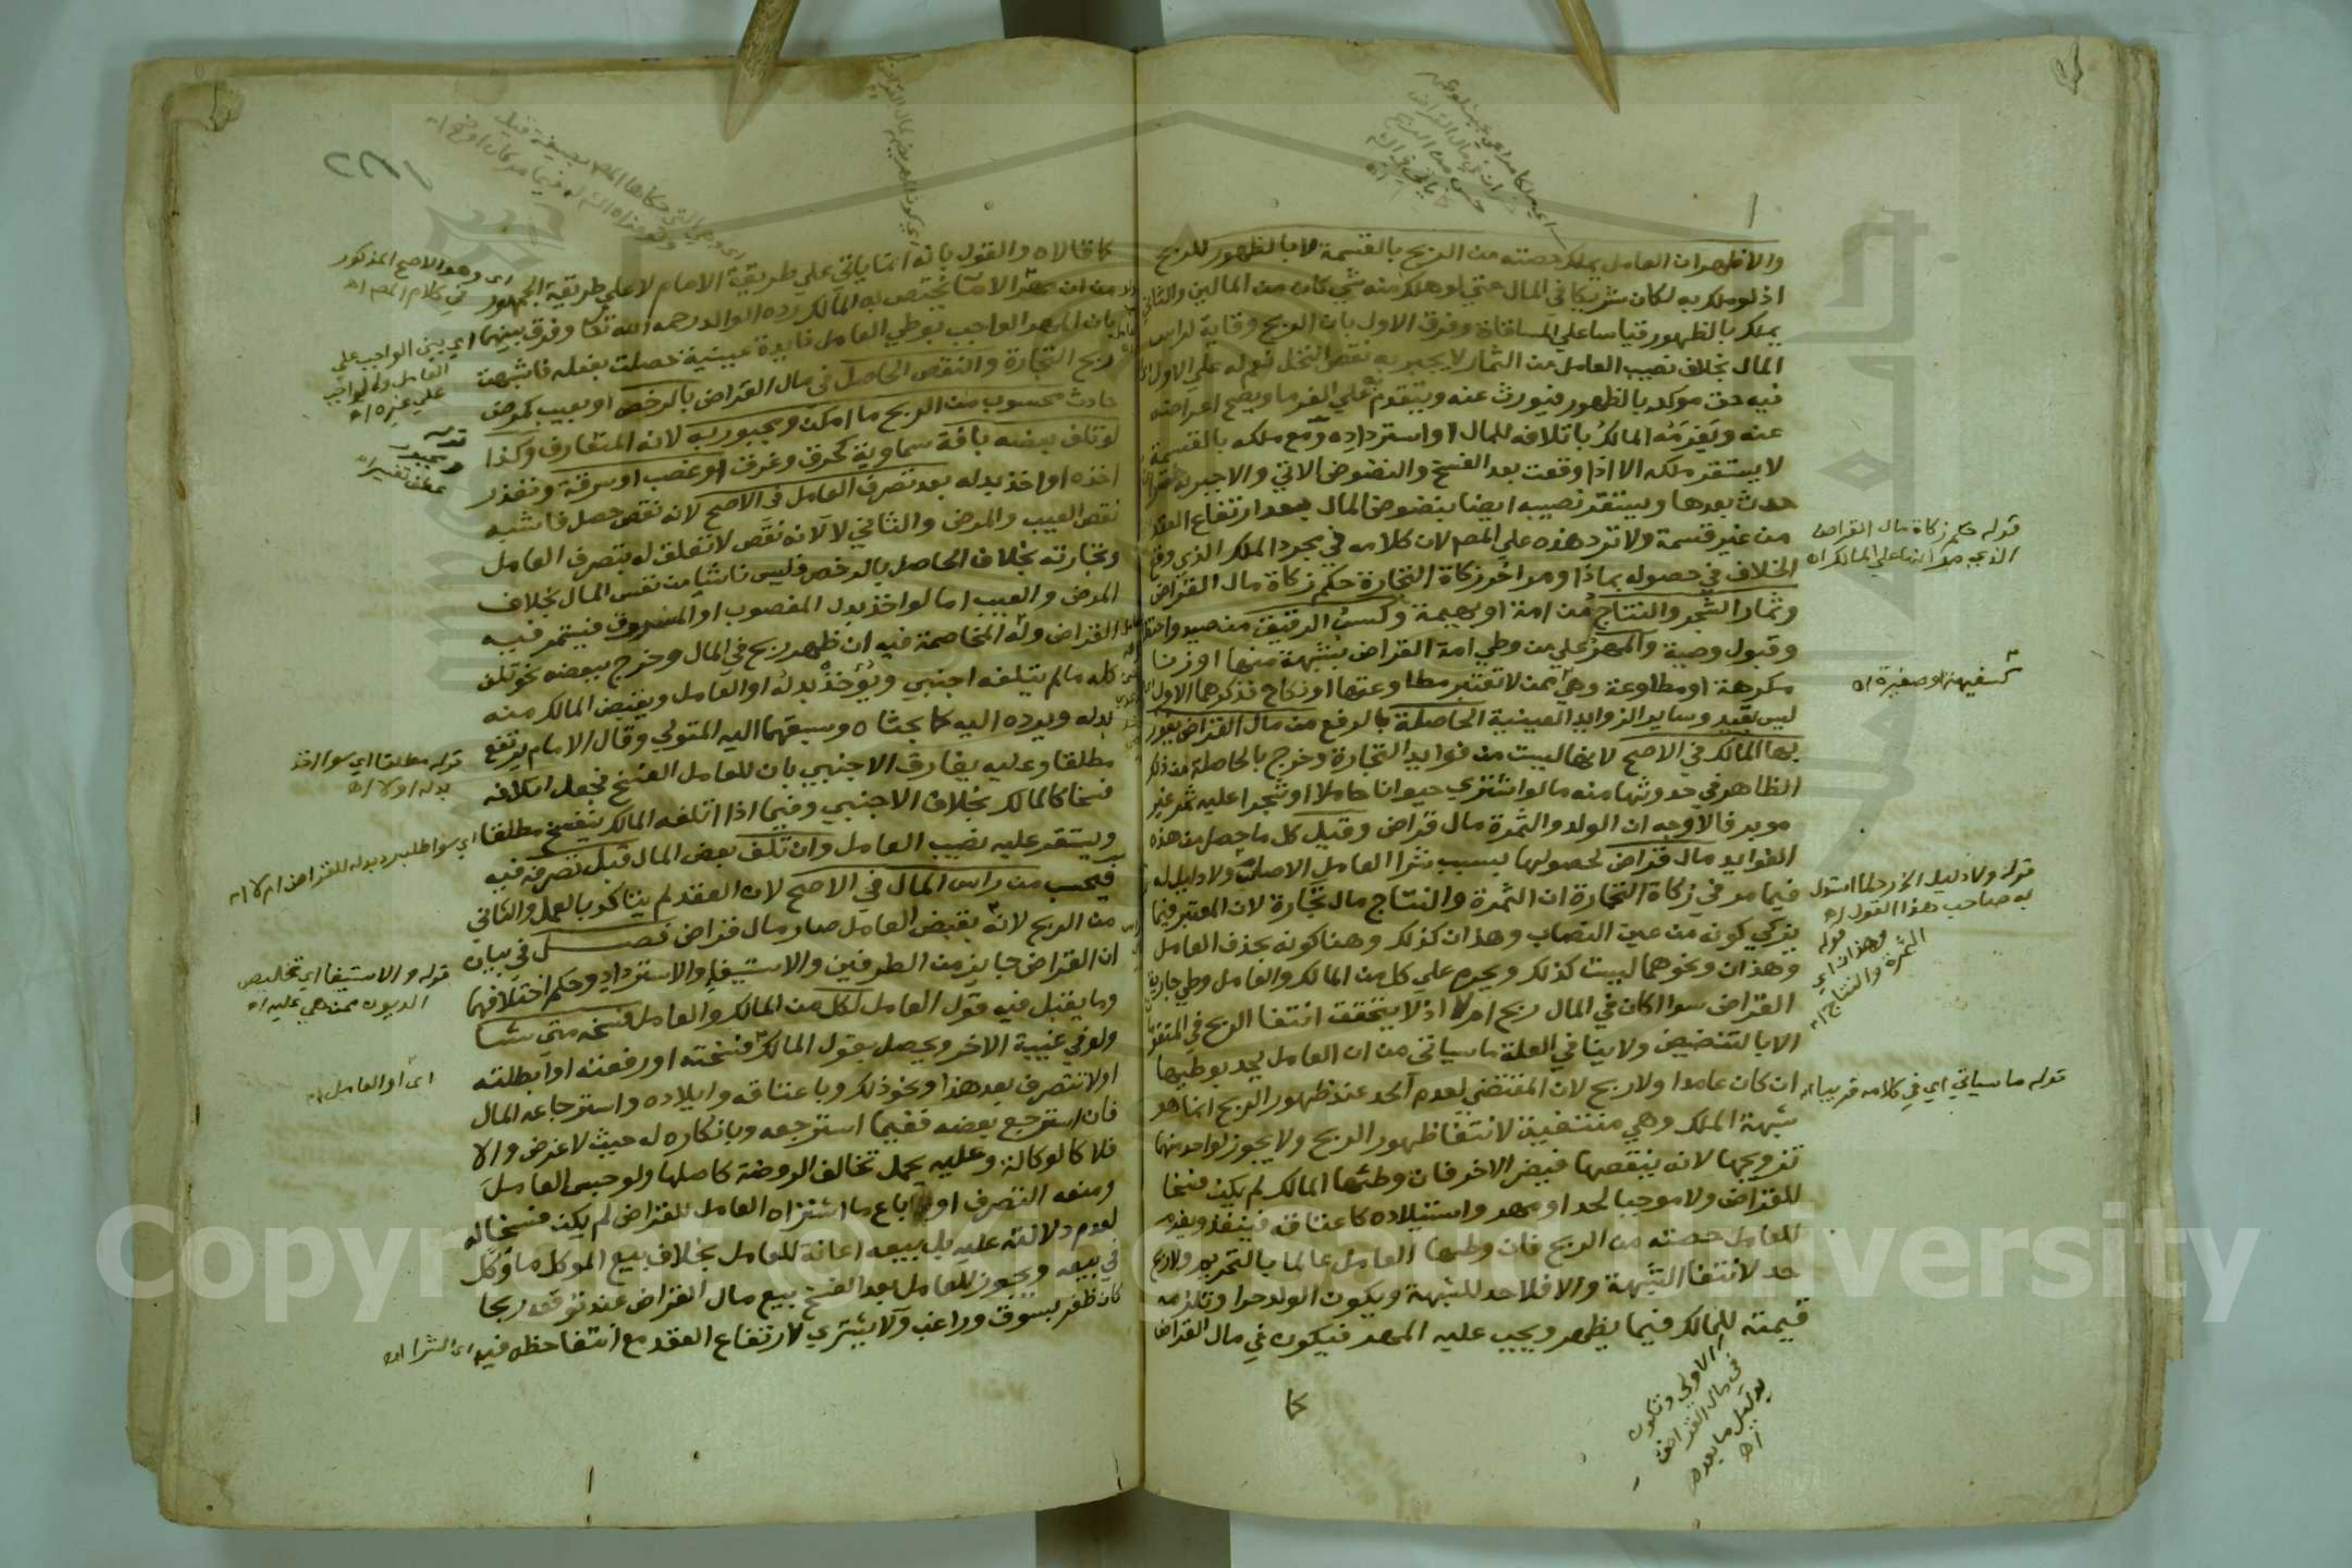 والاظهر ان العامل يملك حصته من الربح بالقسمة لا بالظهور للربح
اذ لو ملك به لكان شريكا في المال حتى لو هلك منه شي كان من المالين والثاني
يملك بالظهور قياسا على المساقاة وفرق الاول بان الربح وقاية لراس
المال بخلاف نصيب العامل من الثمار لا يجبر به نقص النخل نعم له على الاول
فيه حق موكد بالظهور فيورث عنه ويتقدم به على الغرما ويصح اعراضه
عنه ويغرمه المالك باتلافه للمال او استرداده ومع ملكه بالقسمة
لا يستقر ملكه الا اذا وقعت بعد الفسخ والنضوض الاتي والا جبر به
حدث بعدها ويستقر نصيبه ايضا بنضوض المال بعد ارتفاع العقد
من غير قسمة ولا ترد هذه على المص لان كلامه في مجرد الملك الذي وقع
الخلاف في حصوله بماذا ومر اخر زكاة التجارة حكم زكاة مال القراض
وثمار الشجر والنتاج من امة او بهيمة وكسب الرقيق من صيد واحتطاب
وقبول وصية والمهر على من وطي امة القراض بشبهة منها او زنا
مكرهة او مطاوعة وهي ممن لا تعتبر مطاوعتها او نكاح فذكرهما الاول
ليس بقيد وساير الزوايد العينية الحاصلة بالرفع من مال القراض يفوز
بها المالك في الاصح لانها ليست من فوايد التجارة وخرج بالحاصلة من ذلك
الظاهر في حدوثها منه ما لو اشترى حيوانا حاملا او شجرا عليه ثمر غير
موبر فالاوجه ان الولد والثمرة مال قراض وقيل كل ما حصل من هذه
الفوايد مال قراض لحصولها بسبب شرا العامل الاصل ولا دليل له
فيما مر في زكاة التجارة ان الثمرة والنتاج مال تجارة لان المعتبر فيما
يزكي كونه من عين النصاب وهذان كذلك وهنا كونه بحذف العامل
وهذان ونحوهما ليست كذلك ويحرم على كل من المالك والعامل وطي جارية
القراض سوا اكان في المال ربح ام لا اذ لا يتحقق انتفا الربح في المتقومات
الا بالتنضيض ولا ينافي العلة ما سياتي من ان العامل يحد بوطيها
ان كان عامدا ولا ربح لان المقتضي لعدم الحد عند ظهور الربح انما هو
شبهة الملك وهي منتفية لانتفا ظهور الربح ولا يجوز لواحد منهما
تزويجها لانه ينقصها فيضر الاخر فان وطئها المالك لم يكن فسخا
للقراض ولا موجبا لحد او مهر واستيلاده كاعتاقه فينفذ ويغرم
للعامل حصته من الربح فان وطيها العامل عالما بالتحريم ولا ربح
حد لانتفا الشبهة والا فلا حد للشبهة ويكون الولد حرا وتلزمه
قيمته للمالك فيما يظهر ويجب عليه المهر فيكون في مال القراض
قوله حكم زكاة مال القراض
الذي مر انها على المالك اه
كسفيهة او صغيرة اه
قوله ولا دليل الخ رد لما استدل
به صاحب هذا القول اه
قوله
وهذان اي
الثمرة والنتاج اه
قوله ما سياتي اي في كلامه قريبا اه
الاولى وتكون
في مال القراض
بدليل ما بعده
اه
كما
كما قالاه والقول بانه انما ياتي على طريقة الامام لا على طريقة الجمهور
من ان مهر الاما يختص به المالك رده الوالد رحمه الله تعالى وفرق بينهما
بان المهر الواجب بوطي العامل فايدة عينية حصلت بفعله فاشبهت
ربح التجارة والنقص الحاصل في مال القراض بالرخص او بعيب كمرض
حادث محسوب من الربح ما امكن ومجبور به لانه المتعارف وكذا
لو تلف بعضه بافة سماوية كحرق وغرق او غصب او سرقة وتعذر
اخذه او اخذ بدله بعد تصرف العامل في الاصح لانه نقص حصل فاشبه
نقص العيب والمرض والثاني لا لانه نقص لا تعلق له بتصرف العامل
وتجارته بخلاف الحاصل بالرخص فليس ناشيا من نفس المال بخلاف
المرض والعيب اما لو اخذ بدل المغصوب او المسروق فيستمر فيه
القراض وله المخاصمة فيه ان ظهر ربح في المال وخرج ببعضه نحو تلف
كله ما لم يتلفه اجنبي ويؤخذ بدله او العامل ويقبض المالك منه
بدله ويرده اليه كما بحثاه وسبقهما اليه المتولي وقال الامام يرتفع
مطلقا وعليه يفارق الاجنبي بان للعامل الفسخ فجعل اتلافه
فسخا كالمالك بخلاف الاجنبي وفيما اذا اتلفه المالك ينفسخ مطلقا
ويستقر عليه نصيب العامل وان تلف بعض المال قبل تصرفه فيه
فيحسب من راس المال في الاصح لان العقد لم يتاكد بالعمل والثاني
من الربح لانه بقبض العامل صار مال قراض فصل في بيان
ان القراض جايز من الطرفين والاستيفا والاسترداد وحكم اختلافهما
وما يقبل فيه قول العامل لكل من المالك والعامل فسخه متى شا
ولو في غيبة الاخر ويحصل بقول المالك فسخته او رفعته او ابطلته
او لا تتصرف بعد هذا ونحو ذلك وباعتاقه وايلاده واسترجاعه المال
فان استرجع بعضه ففيما استرجعه وبانكاره له حيث لا غرض والا
فلا كالوكالة وعليه يحمل تخالف الروضة كاصلها ولو حبس العامل
ومنعه التصرف او باع ما اشتراه العامل للقراض لم يكن فسخا له
لعدم دلالته عليه بل بيعه اعانة للعامل بخلاف بيع الموكل ما وكل
في بيعه ويجوز للعامل بعد الفسخ بيع مال القراض عند توقعه ربحا
كان ظفر بسوق وراغب ولا يشتري لارتفاع العقد مع انتفا حظه فيه
اى وهو الاصح المذكور
في كلام المص اه
اي بين الواجب على
العامل والواجب
على غيره اه
قوله
ومجبور
عطف تفسير اه
قوله مطلقا اي سوا اخذ
بدله او لا اه
اي سوا طلب رد بدله للقراض ام لا اه
قوله والاستيفا اي تخليص
الديون ممن هي عليه اه
اى او العامل اه
اى الشرا اه